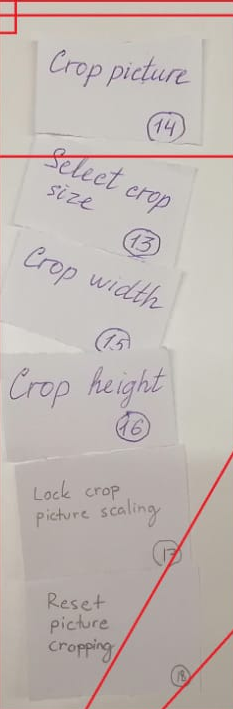 Crop picture
14
Select crop
size
13
Crop width
15
Crop height
16
Lock crop
picture scaling
17
Reset
picture
cropping
18